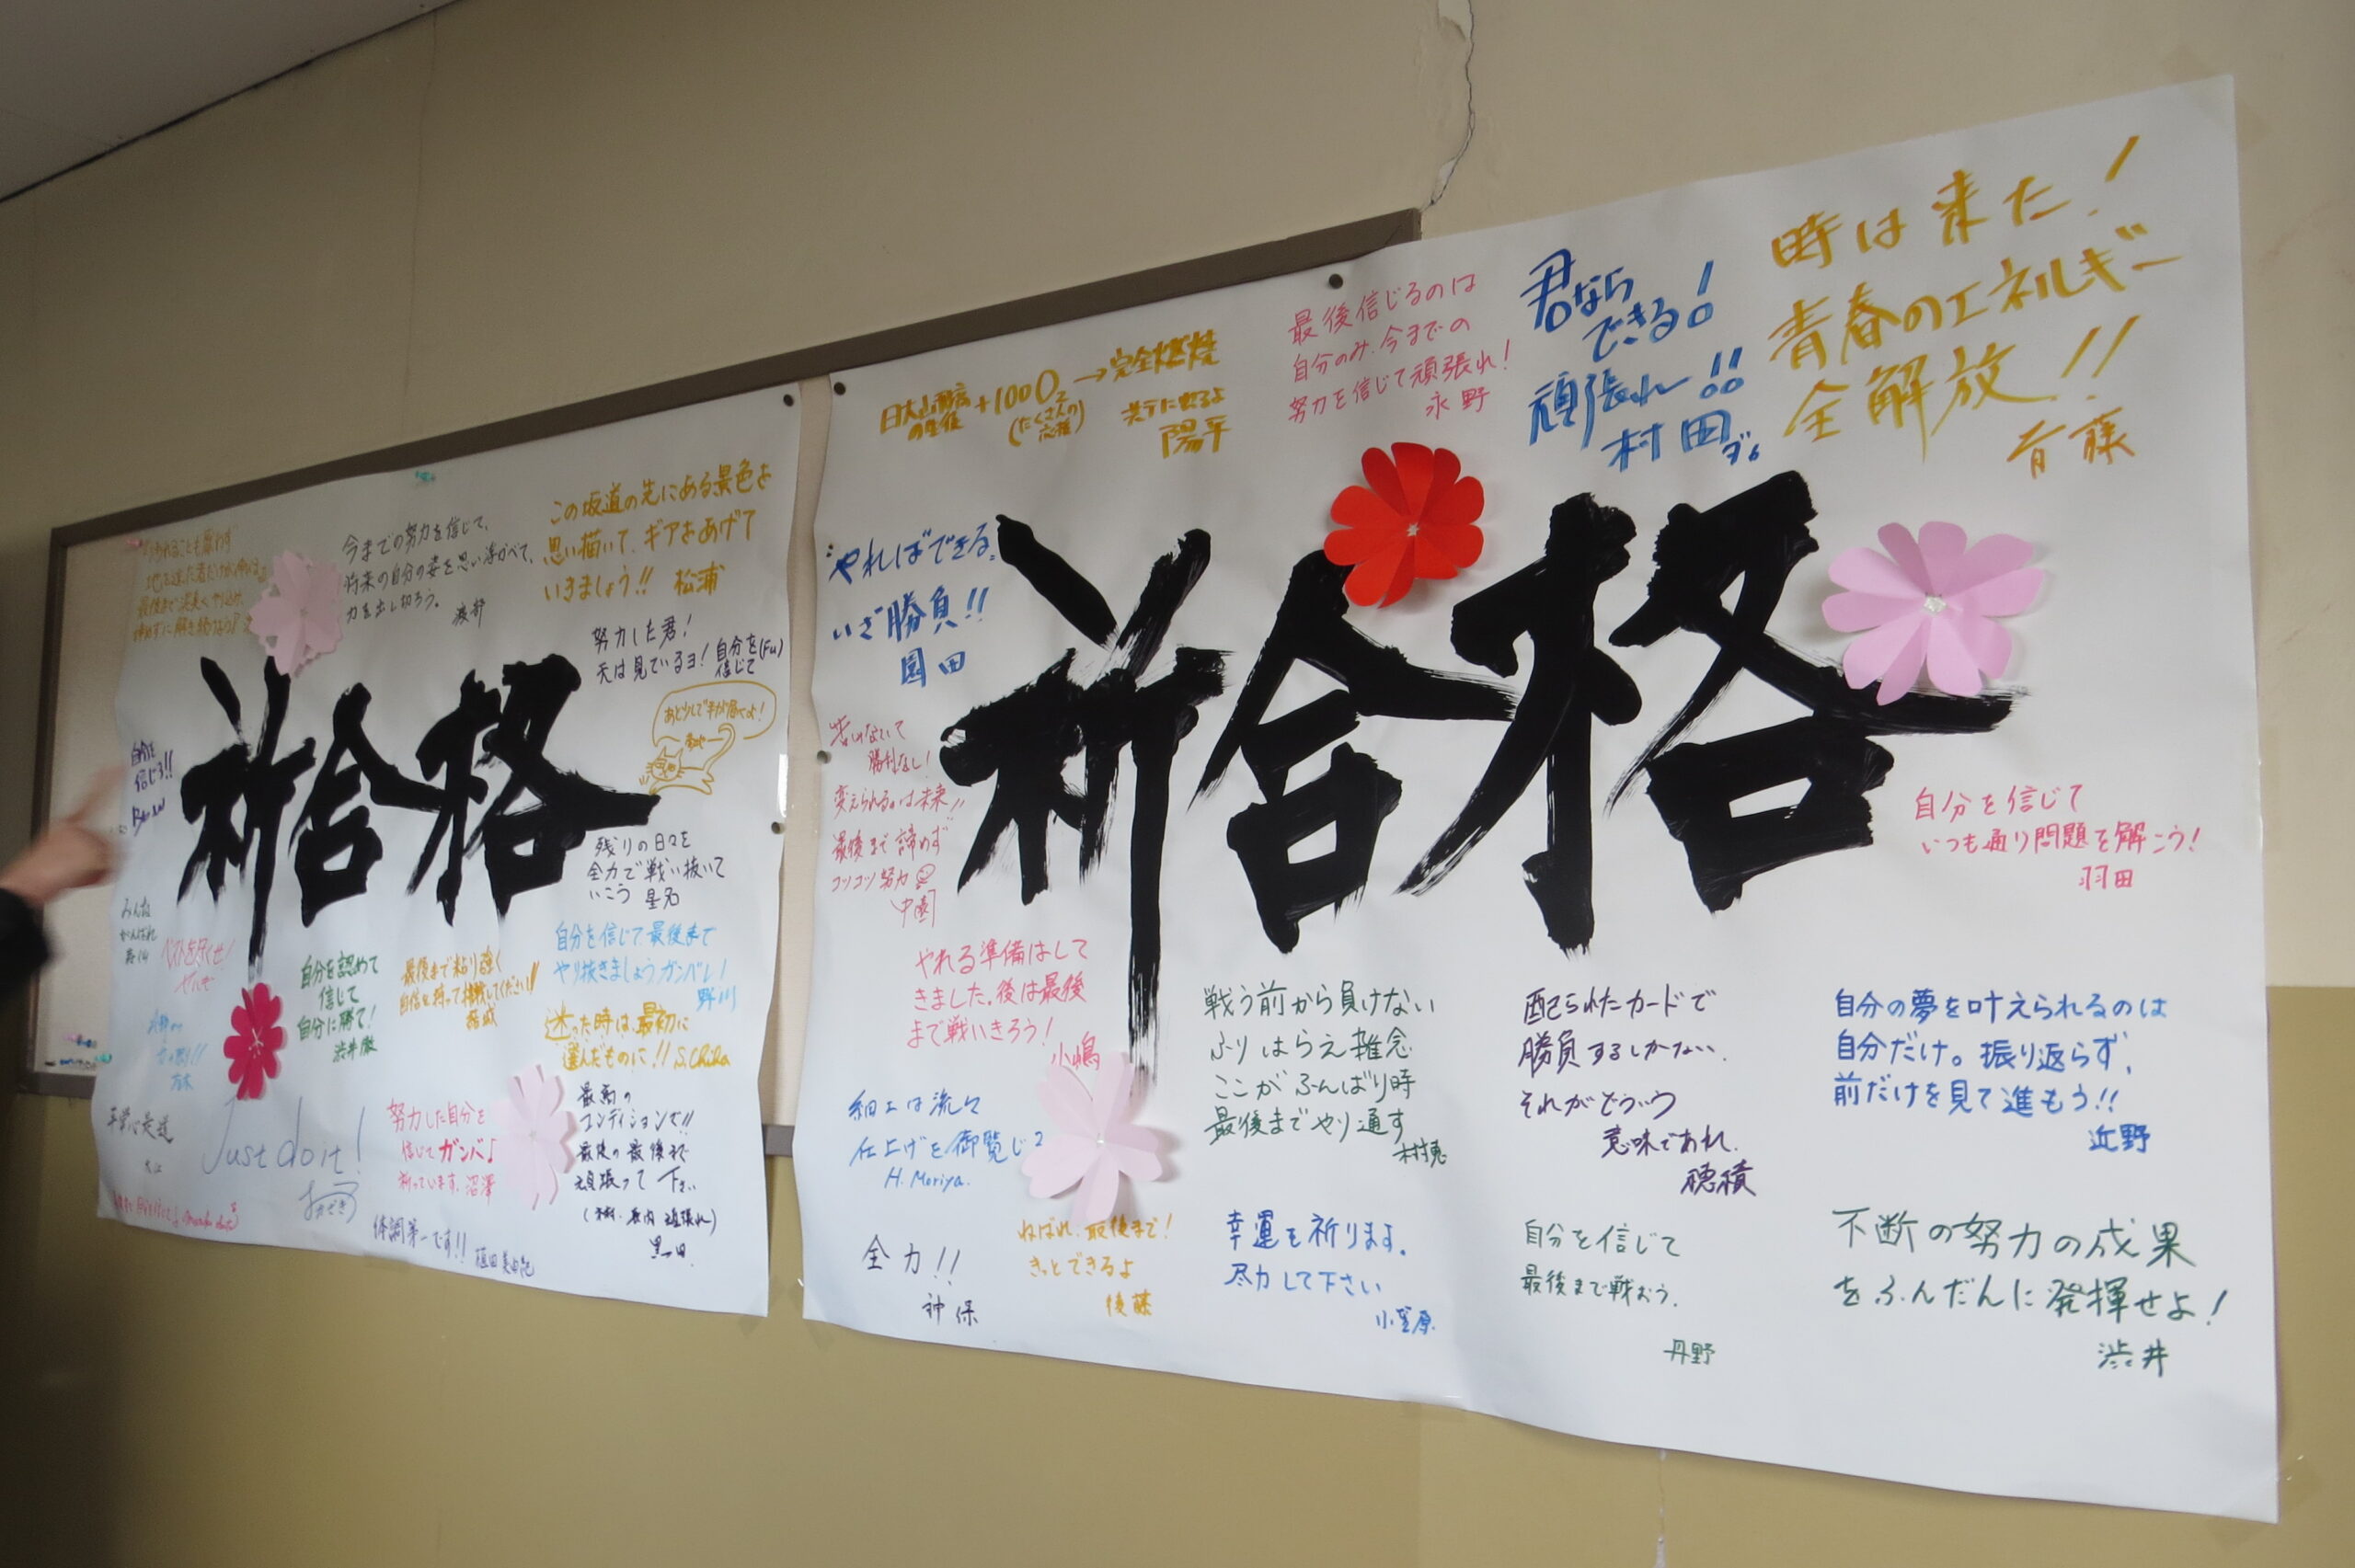 今までの努力を信じて、
将来の自分の姿を思い浮かべて、
力を出し切ろう。
渡部
この坂道の先にある景色を
思い描いて、ギアをあげて
いきましょう!! 松浦
努力した君!
天は見ているヨ! 自分を信じて (Fu)
あと少しで手が届くよ!
祈合格
自分を
信じろ!!
残りの日々を
全力で戦い抜いて
いこう 星名
みんな
がんばれ
ベストを尽くせ!
自分を認めて
信じて
自分に勝て!
渋井徹
最後まで粘り強く
自信を持って挑戦してください!!
結城
自分を信じて最後まで
やり抜きましょうガンバレ!
野川
迷った時は、最初に
選んだものに!! S.Chiba
平常心是道
Just do it!
努力した自分を
信じてガンバ♩
祈っています。沼澤
最高の
コンディションで!!
最後の最後まで
頑張って下さい
黒田
体調第一です!!
日大山形高の生徒+100O₂→完全燃焼
(たくさんの応援)
陽平
最後信じるのは
自分のみ。今までの
努力を信じて頑張れ!
永野
君なら
できる!
頑張れ!!
村田
時は来た!
青春のエネルギー
全解放!!
斉藤
やればできる。
いざ勝負!!
園田
祈合格
苦しまないで
勝利なし!
変えられるのは未来!!
最後まで諦めず
コツコツ努力
中園
自分を信じて
いつも通り問題を解こう!
羽田
やれる準備はして
きました。後は最後
まで戦いきろう!
小嶋
戦う前から負けない
ふりはらえ雑念
ここがふんばり時
最後までやり通す
配られたカードで
勝負するしかない。
それがどういう
意味であれ。
穂積
自分の夢を叶えられるのは
自分だけ。振り返らず、
前だけを見て進もう!!
近野
細工は流々
仕上げを御覧じろ
H. Moriya.
全力!!
神保
ねばれ、最後まで!
きっとできるよ
後藤
幸運を祈ります。
尽力して下さい
小笠原
自分を信じて
最後まで戦おう。
丹野
不断の努力の成果
をふんだんに発揮せよ!
渋井